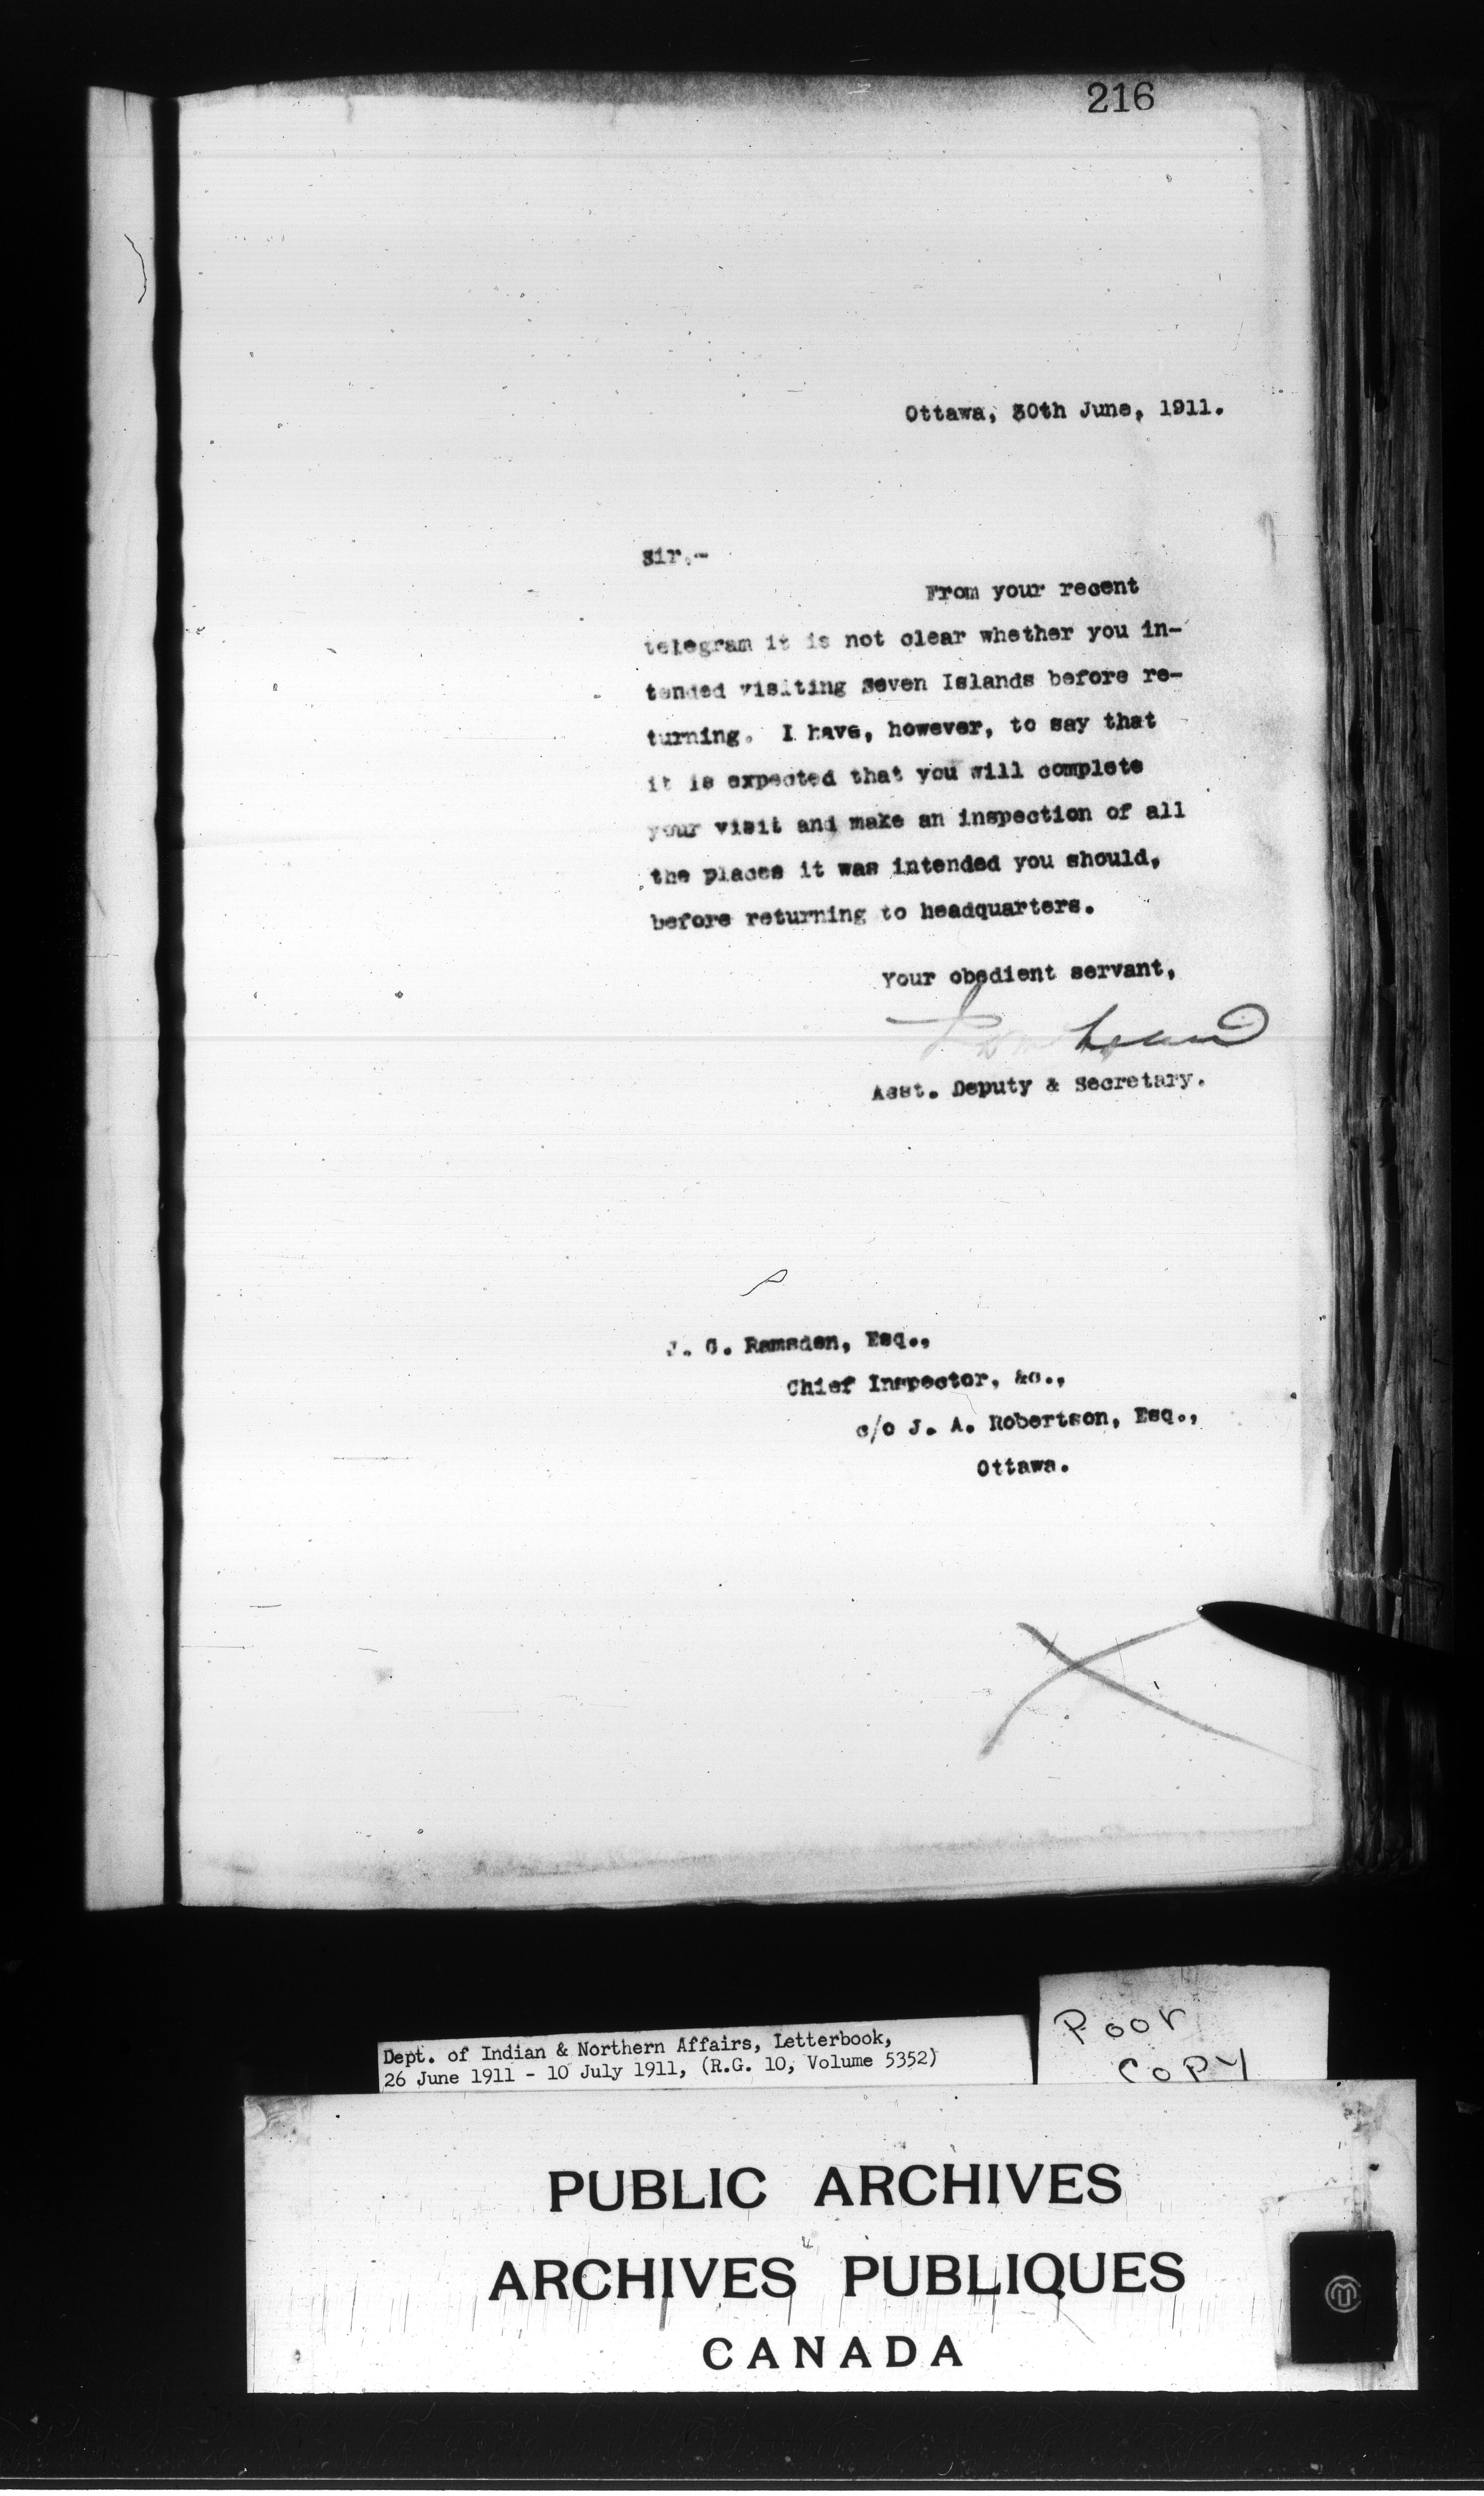 216
Ottawa, 30th June, 1911.
Sir.-
From your recent
telegram it is not clear whether you in-
tended visiting Seven Islands before re-
turning. I have, however, to say that
it is expected that you will complete
your visit and make an inspection of all
the places it was intended you should,
before returning to headquarters.
Your obedient servant,
Asst. Deputy & Secretary.
J. G. Ramsden, Esq.,
Chief Inspector, &c.,
c/o J. A. Robertson, Esq.,
Ottawa.
Dept. of Indian & Northern Affairs, Letterbook,
26 June 1911 - 10 July 1911, (R.G. 10, Volume 5352)
Poor
COPY
PUBLIC ARCHIVES
ARCHIVES PUBLIQUES
CANADA